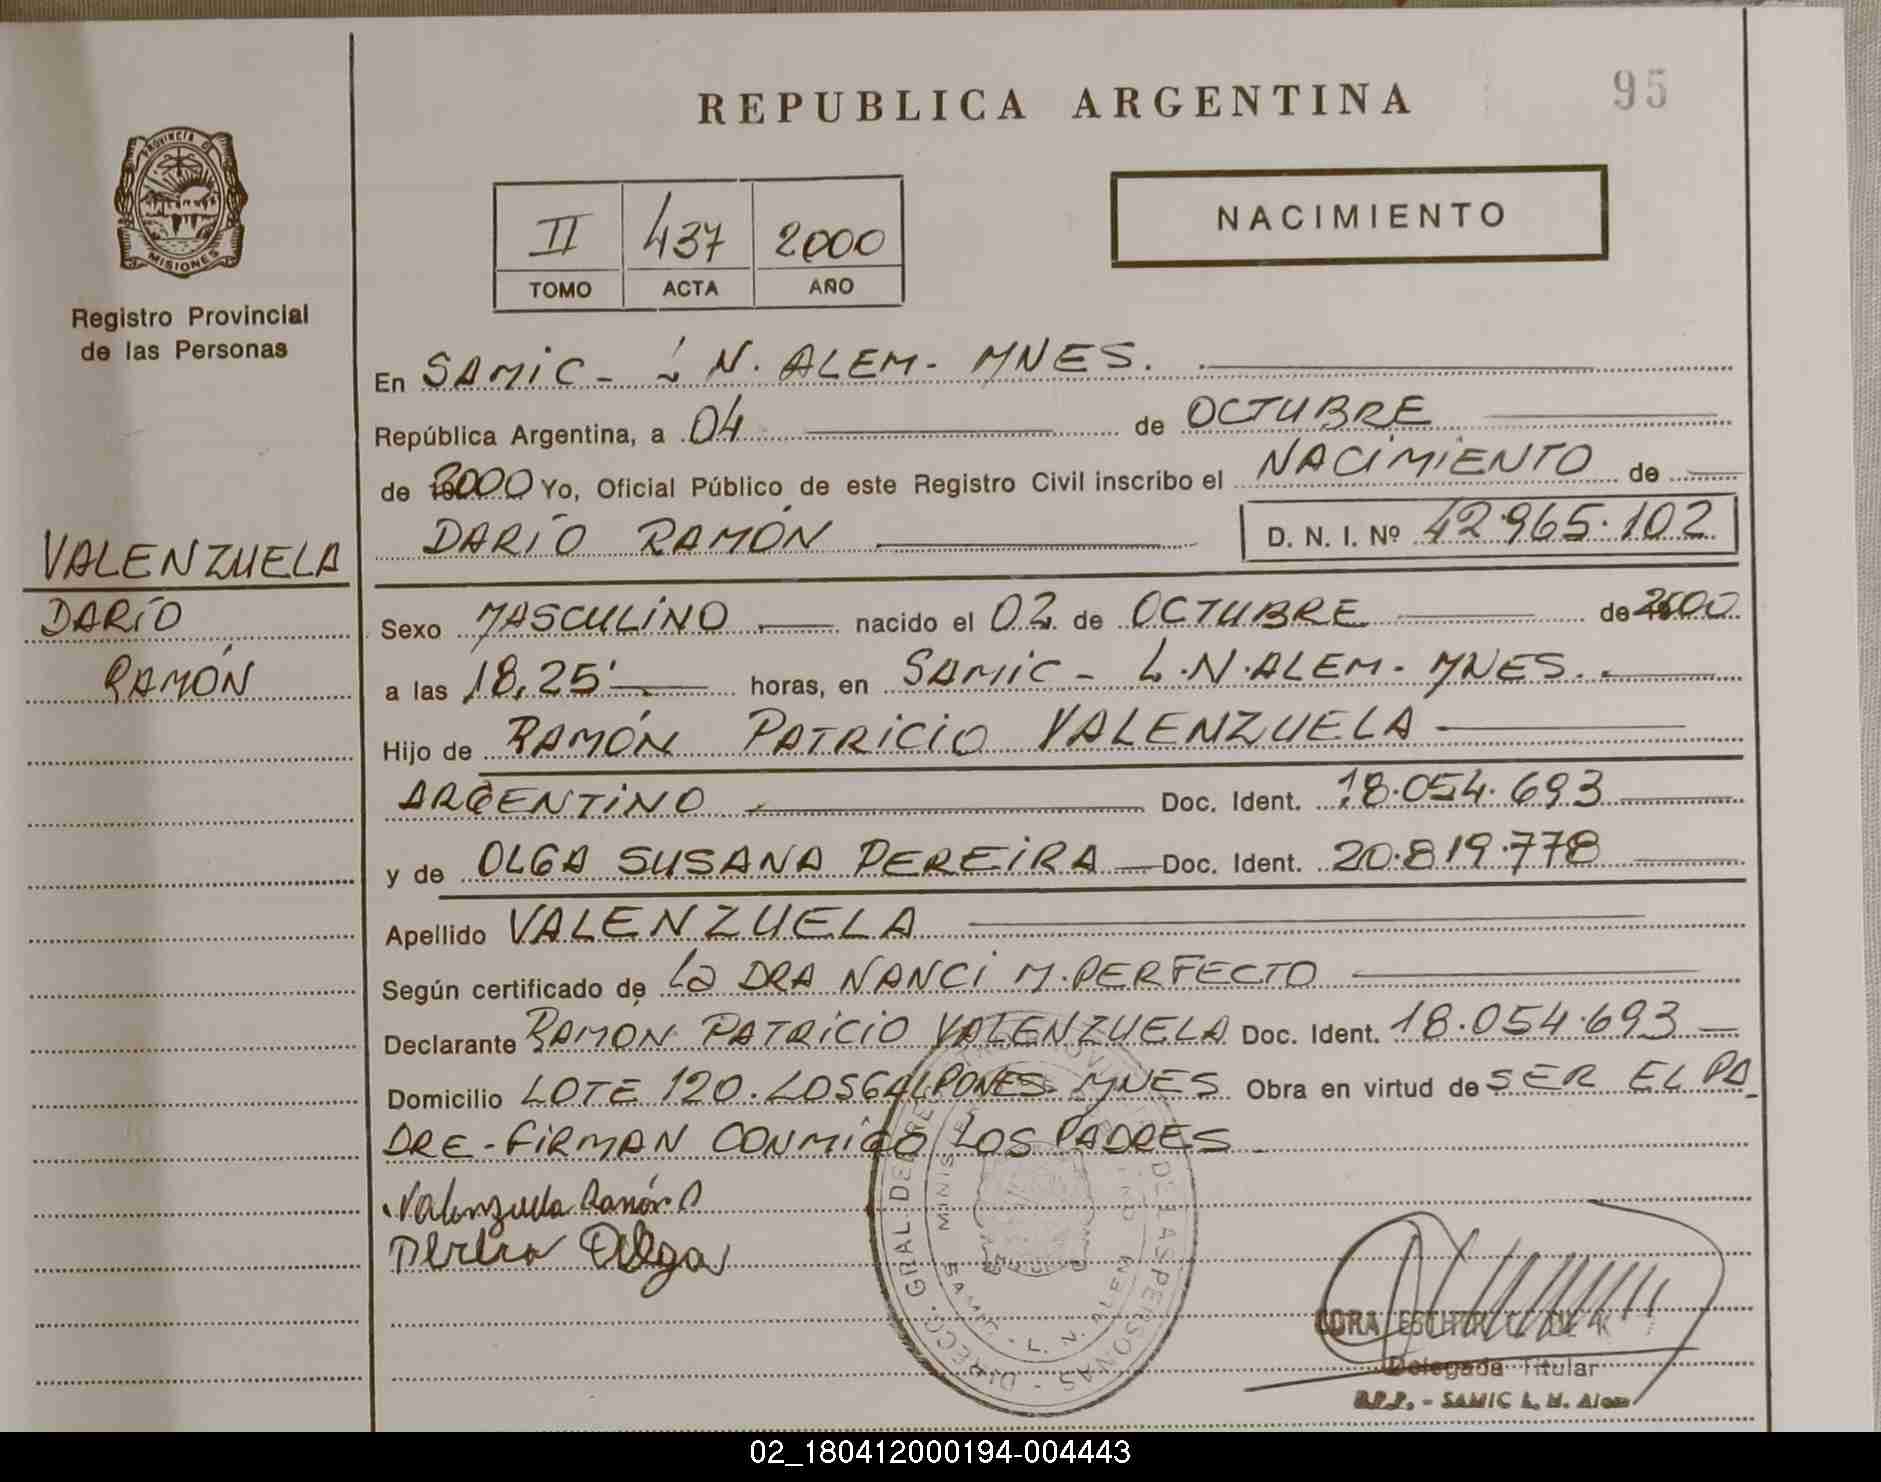 REPUBLICA ARGENTINA
95
PROVINCIA DE
MISIONES
Registro Provincial
de las Personas
II 437 2000
TOMO ACTA AÑO
NACIMIENTO
En SAMIC - L N. ALEM - MNES.
República Argentina, a 04 de OCTUBRE
de 2000 Yo, Oficial Público de este Registro Civil inscribo el NACIMIENTO de
DARÍO RAMÓN D. N. I. Nº 42.965.102
VALENZUELA
DARÍO
RAMÓN
Sexo MASCULINO nacido el 02 de OCTUBRE de 2000
a las 18,25' horas, en SAMIC - L.N.ALEM - MNES.
Hijo de RAMÓN PATRICIO VALENZUELA
ARGENTINO Doc. Ident. 18.054.693
y de OLGA SUSANA PEREIRA Doc. Ident. 20.819.778
Apellido VALENZUELA
Según certificado de la DRA NANCI M. PERFECTO
Declarante RAMÓN PATRICIO VALENZUELA Doc. Ident. 18.054.693
Domicilio LOTE 120. LOS GALPONES MNES Obra en virtud de SER EL PA
DRE - FIRMAN CONMIGO LOS PADRES
Valenzuela Ramón P
Pereira Olga
DE LAS PERSONAS - DIRECC. GRAL. DE
SAMIC. - L. N. ALEM
Delegada Titular
R.P.P. - SAMIC L. N. Alem
02_180412000194-004443